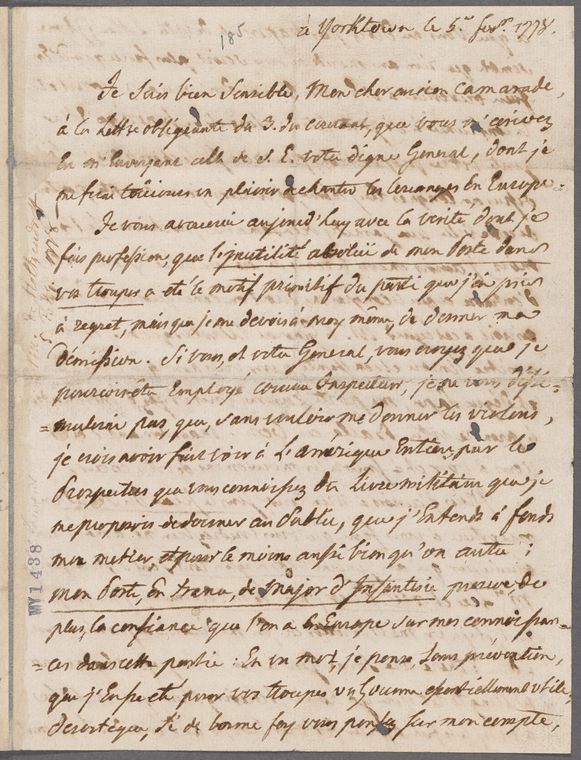 185
à Yorktown le 5. fevr. 1778.
Je suis bien sensible, Mon cher ancien Camarade,
à la lettre obligeante du 3. du courant, que vous m'ecrivez
En m' celle de S. E. votre digne General, dont je
me ferai toujours un plaisir de chanter les louanges En Europe.
Je vous avouerai aujourd'huy avec la verité dont je
fais profession, que l'jnutilité absolüe de mon Poste dans
vos troupes a eté le motif primitif du parti que j'ai pris
à regret, mais que je me devois à moy même, de donner ma
Démission. Si vous, et votre General, vous croyez que je
pourrois être Employé comme Inspecteur, je ne vous dissi=
=mulerai pas, que, sans vouloir me donner les violons,
je crois avoir fait voir à L'amérique Entiere par le
Prospectus que vous connoissez du Livre militaire que je
me proposois de donner au Public, que j'Entends à fonds
mon metier, et pour le moins aussi bien qu'un autre;
mon Poste, En france, de Major d'Jnfanterie prouve, de
plus, la confiance que l'on a En Europe sur mes connoissan=
=ces dans cette partie: En un mot, je pense, sans prévention,
que j'Eusse eté pour vos troupes un homme essentiellement utile,
desorteque, si de bonne foy vous pensez sur mon compte,
MY1438